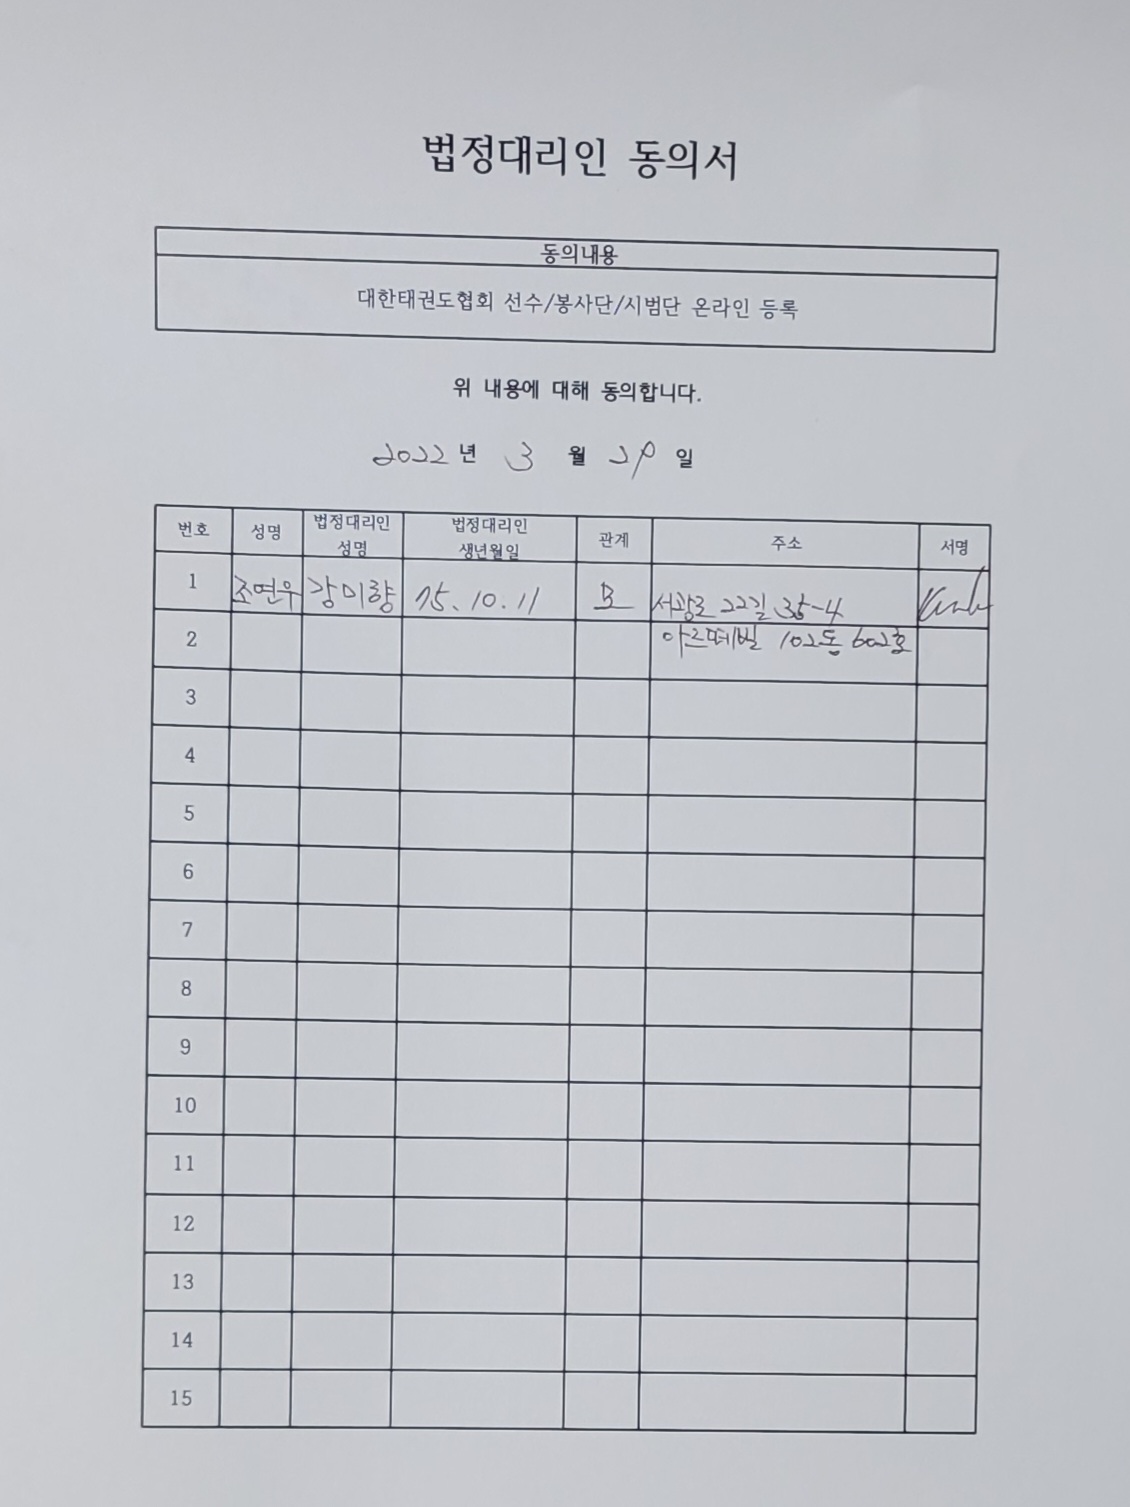 법정대리인 동의서
동의내용
대한태권도협회 선수/봉사단/시범단 온라인 등록
위 내용에 대해 동의합니다.
2022 년 3 월 29 일
번호 성명 법정대리인 성명 법정대리인 생년월일 관계 주소 서명
1 조연우 강미향 75.10.11 모 서광로 22길 35-4
2 아르떼빌 102동 602호
3
4
5
6
7
8
9
10
11
12
13
14
15